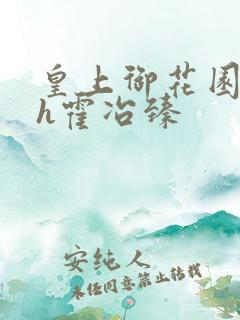 皇上御花园
h霍冶臻
安纯人
未经同意禁止转载